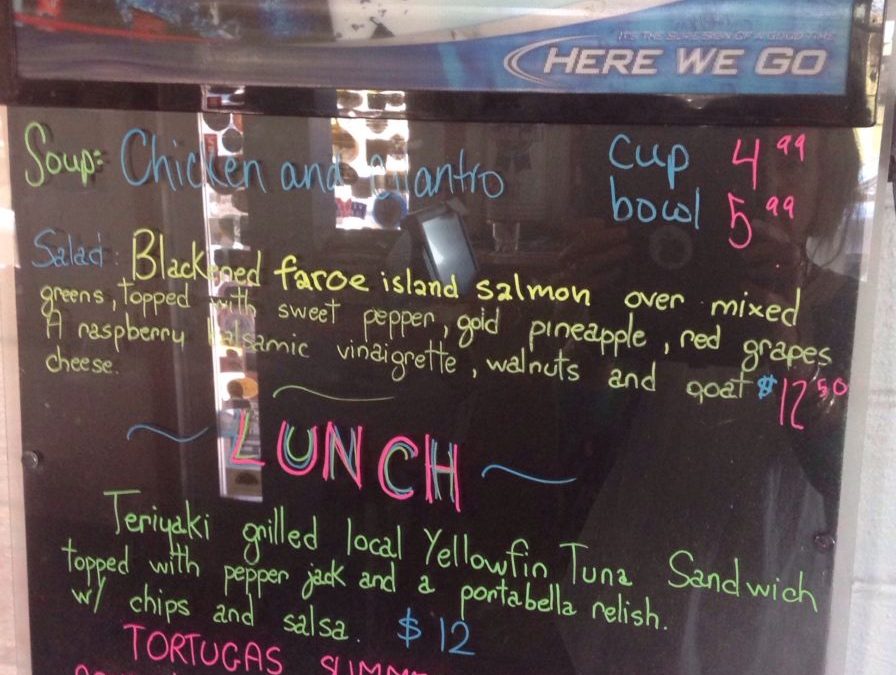 IT'S THE SURE SIGN OF A GOOD TIME
HERE WE GO
Soup: Chicken and Cilantro
cup 4 99
bowl 5 99
Salad: Blackened faroe island salmon over mixed
greens, topped with sweet pepper, gold pineapple, red grapes
A raspberry balsamic vinaigrette, walnuts and goat $12 50
cheese.
LUNCH
Teriyaki grilled local Yellowfin Tuna Sandwich
topped with pepper jack and a portabella relish.
w/ chips and salsa. $12
TORTUGAS